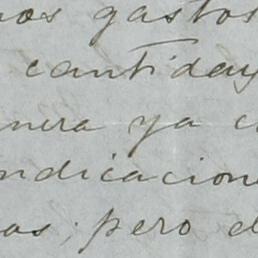 nos gastos
cantiday
nera ya c
ndicacion
as; pero d